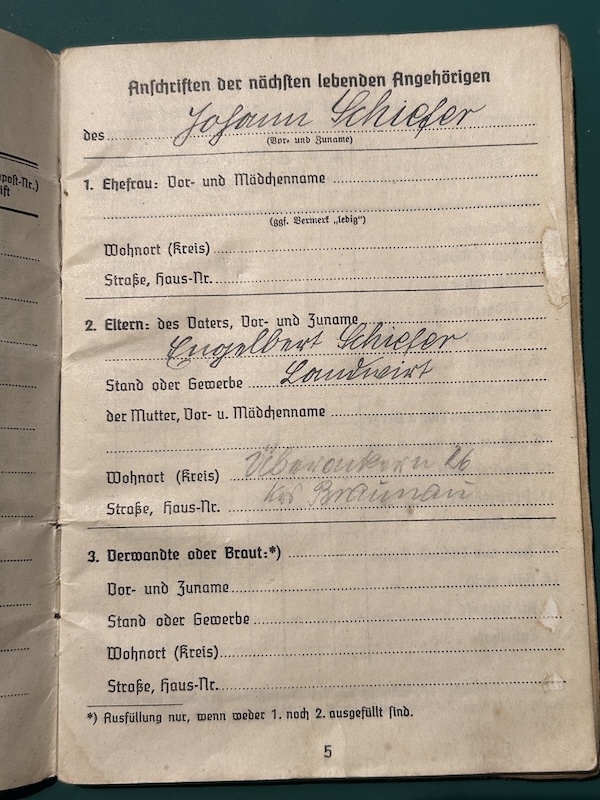 post-Nr.)
ift
Anschriften der nächsten lebenden Angehörigen
des Johann Schiefer
(Vor- und Zuname)
1. Ehefrau: Vor- und Mädchenname
(ggf. Vermerk „ledig“)
Wohnort (Kreis)
Straße, Haus-Nr.
2. Eltern: des Vaters, Vor- und Zuname
Engelbert Schiefer
Stand oder Gewerbe Landwirt
der Mutter, Vor- u. Mädchenname
Wohnort (Kreis) 26
Straße, Haus-Nr. Braunau
3. Verwandte oder Braut:*)
Vor- und Zuname
Stand oder Gewerbe
Wohnort (Kreis)
Straße, Haus-Nr.
*) Ausfüllung nur, wenn weder 1. noch 2. ausgefüllt sind.
5